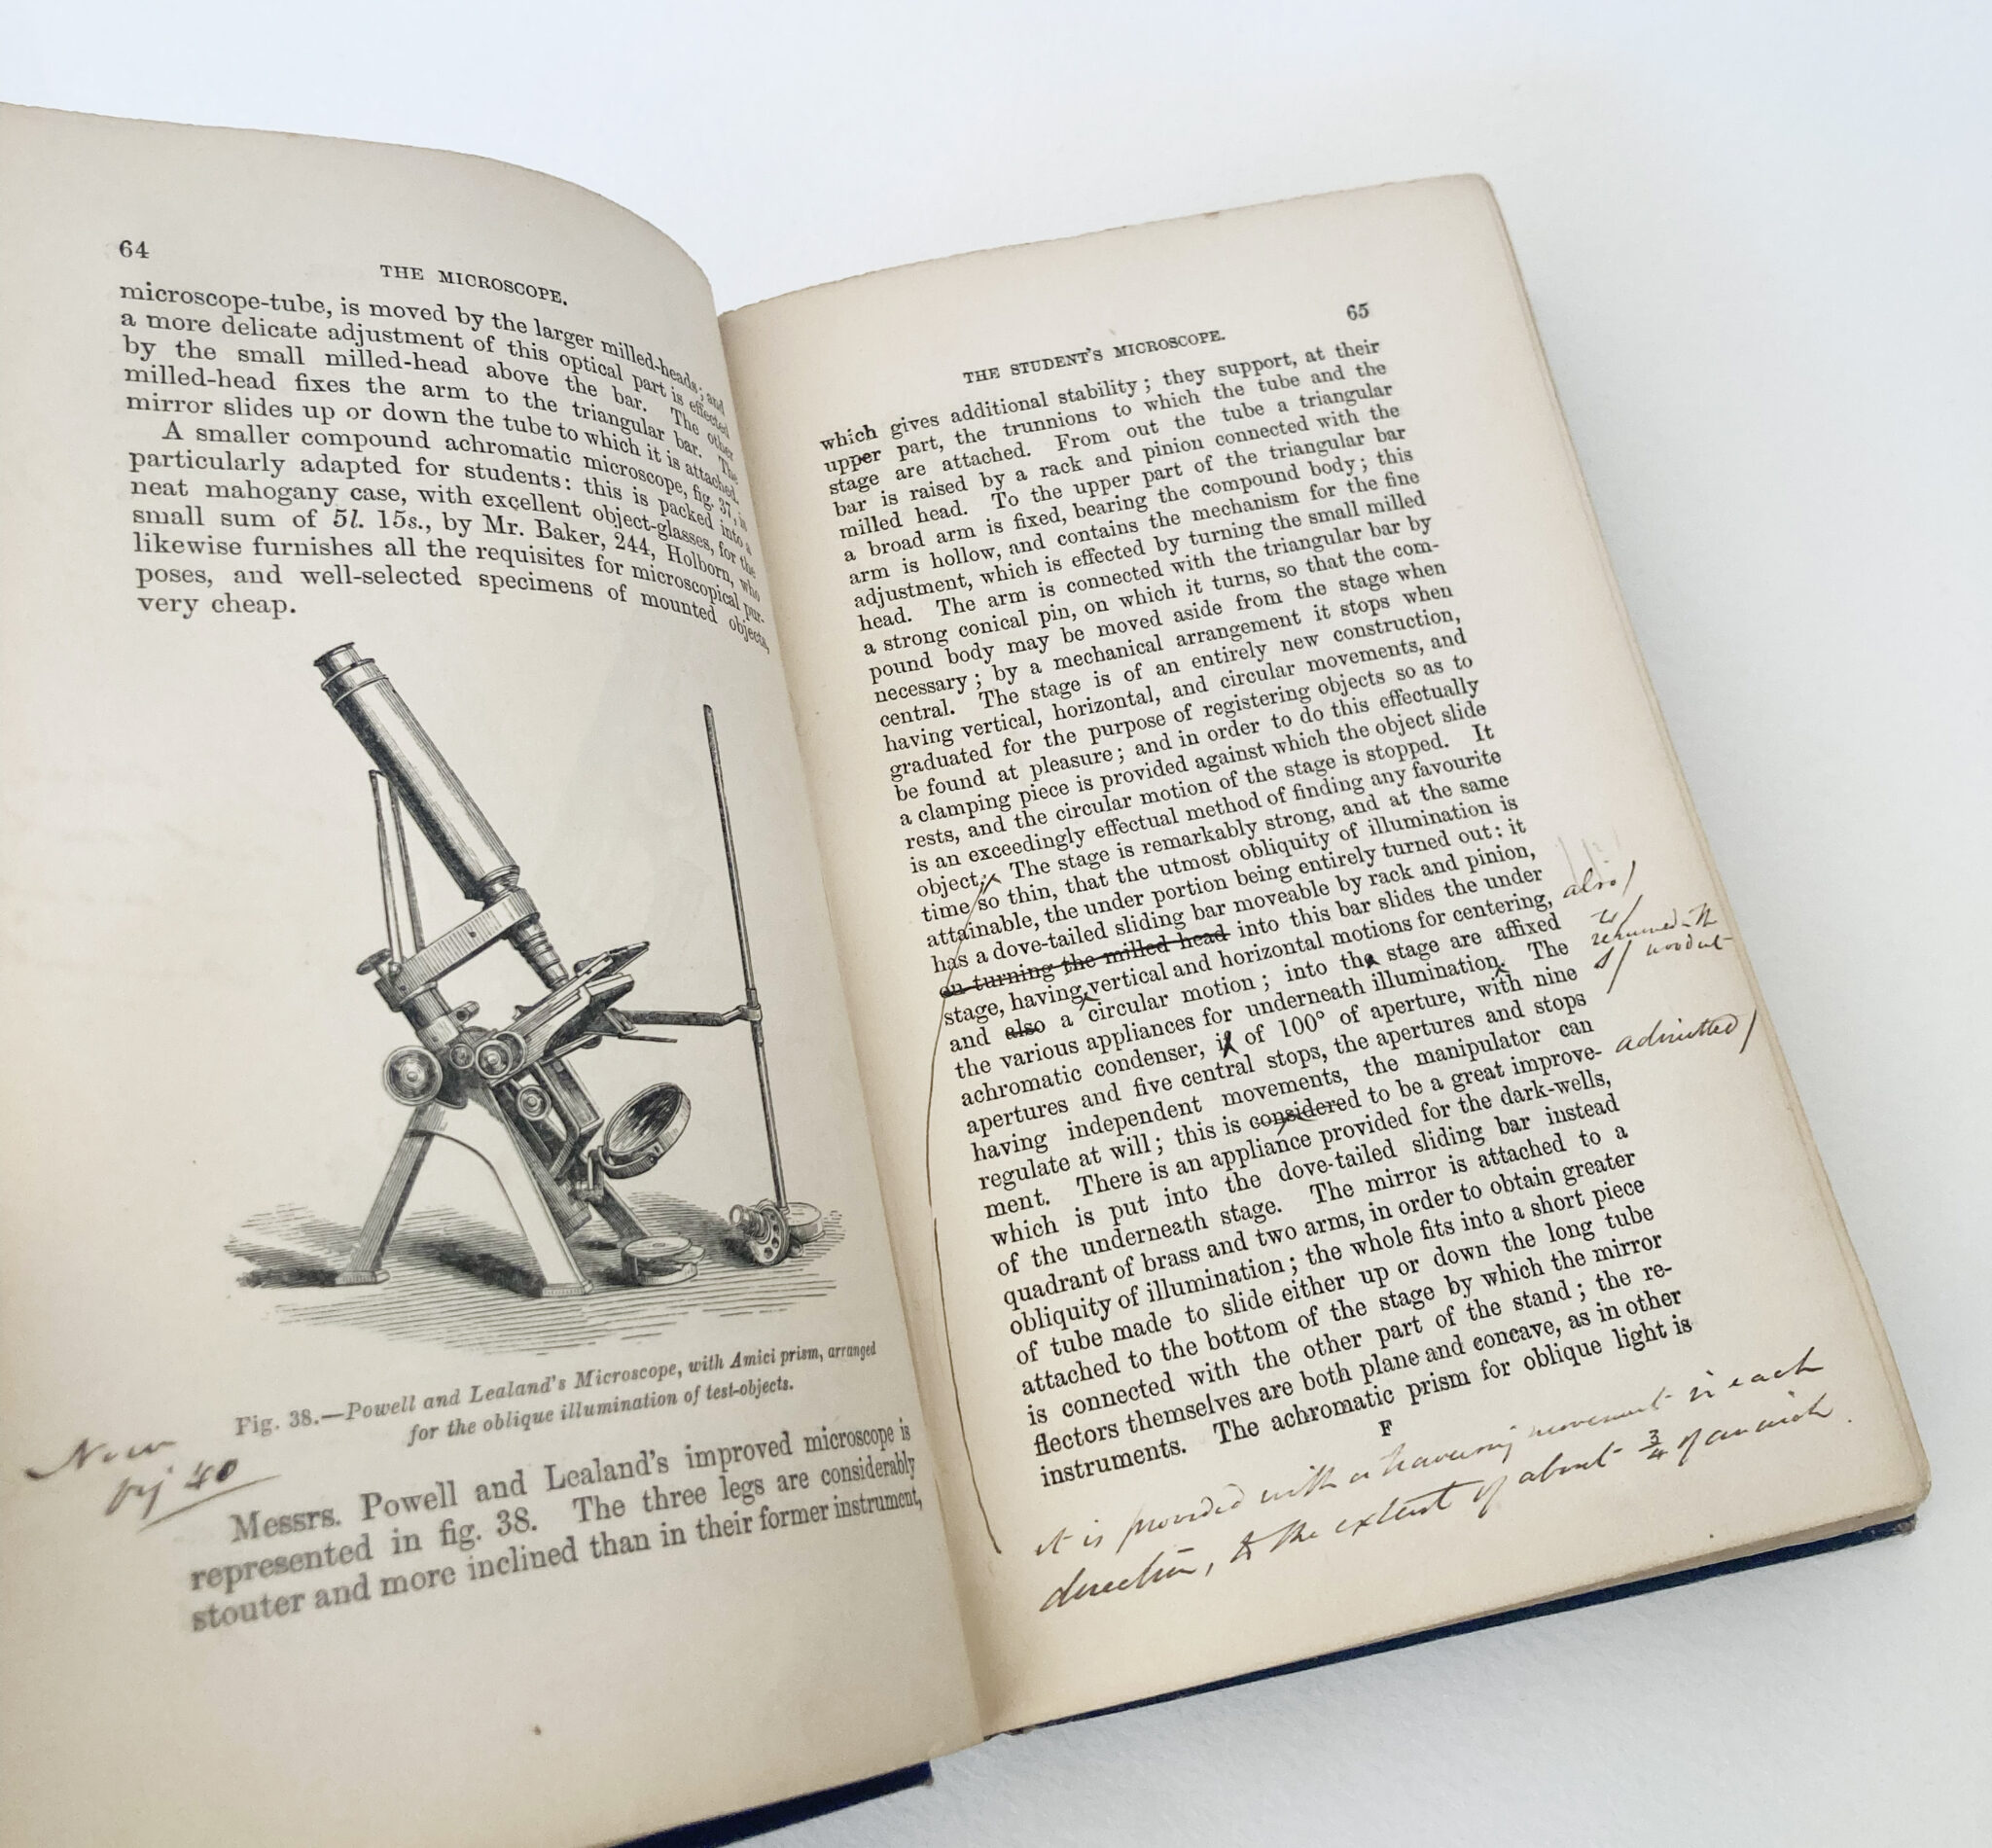 64
THE MICROSCOPE.
microscope-tube, is moved by the larger milled-heads; and
a more delicate adjustment of this optical part is effected
by the small milled-head above the bar. The other
milled-head fixes the arm to the triangular bar. The
mirror slides up or down the tube to which it is attached.
A smaller compound achromatic microscope, fig. 37, is
particularly adapted for students: this is packed into a
neat mahogany case, with excellent object-glasses, for the
small sum of 5l. 15s., by Mr. Baker, 244, Holborn, who
likewise furnishes all the requisites for microscopical pur-
poses, and well-selected specimens of mounted objects,
very cheap.
Fig. 38.—Powell and Lealand's Microscope, with Amici prism, arranged
for the oblique illumination of test-objects.
Now
fig 40
Messrs. Powell and Lealand's improved microscope is
represented in fig. 38. The three legs are considerably
stouter and more inclined than in their former instrument,
65
THE STUDENT'S MICROSCOPE.
which gives additional stability; they support, at their
upper part, the trunnions to which the tube and the
stage are attached. From out the tube a triangular
bar is raised by a rack and pinion connected with the
milled head. To the upper part of the triangular bar
a broad arm is fixed, bearing the compound body; this
arm is hollow, and contains the mechanism for the fine
adjustment, which is effected by turning the small milled
head. The arm is connected with the triangular bar by
a strong conical pin, on which it turns, so that the com-
pound body may be moved aside from the stage when
necessary; by a mechanical arrangement it stops when
central. The stage is of an entirely new construction,
having vertical, horizontal, and circular movements, and
graduated for the purpose of registering objects so as to
be found at pleasure; and in order to do this effectually
a clamping piece is provided against which the object slide
rests, and the circular motion of the stage is stopped. It
is an exceedingly effectual method of finding any favourite
object; The stage is remarkably strong, and at the same
time so thin, that the utmost obliquity of illumination is
attainable, the under portion being entirely turned out: it
has a dove-tailed sliding bar moveable by rack and pinion,
on turning the milled head into this bar slides the under
stage, having vertical and horizontal motions for centering, also/
and also a circular motion; into the stage are affixed
the various appliances for underneath illumination. The
achromatic condenser, is of 100° of aperture, with nine
apertures and five central stops, the apertures and stops
having independent movements, the manipulator can
regulate at will; this is considered to be a great improve- admitted/
ment. There is an appliance provided for the dark-wells,
which is put into the dove-tailed sliding bar instead
of the underneath stage. The mirror is attached to a
quadrant of brass and two arms, in order to obtain greater
obliquity of illumination; the whole fits into a short piece
of tube made to slide either up or down the long tube
attached to the bottom of the stage by which the mirror
is connected with the other part of the stand; the re-
flectors themselves are both plane and concave, as in other
instruments. The achromatic prism for oblique light is
F
it is provided with a traversing movement in each
direction, to the extent of about 3/4 of an inch.